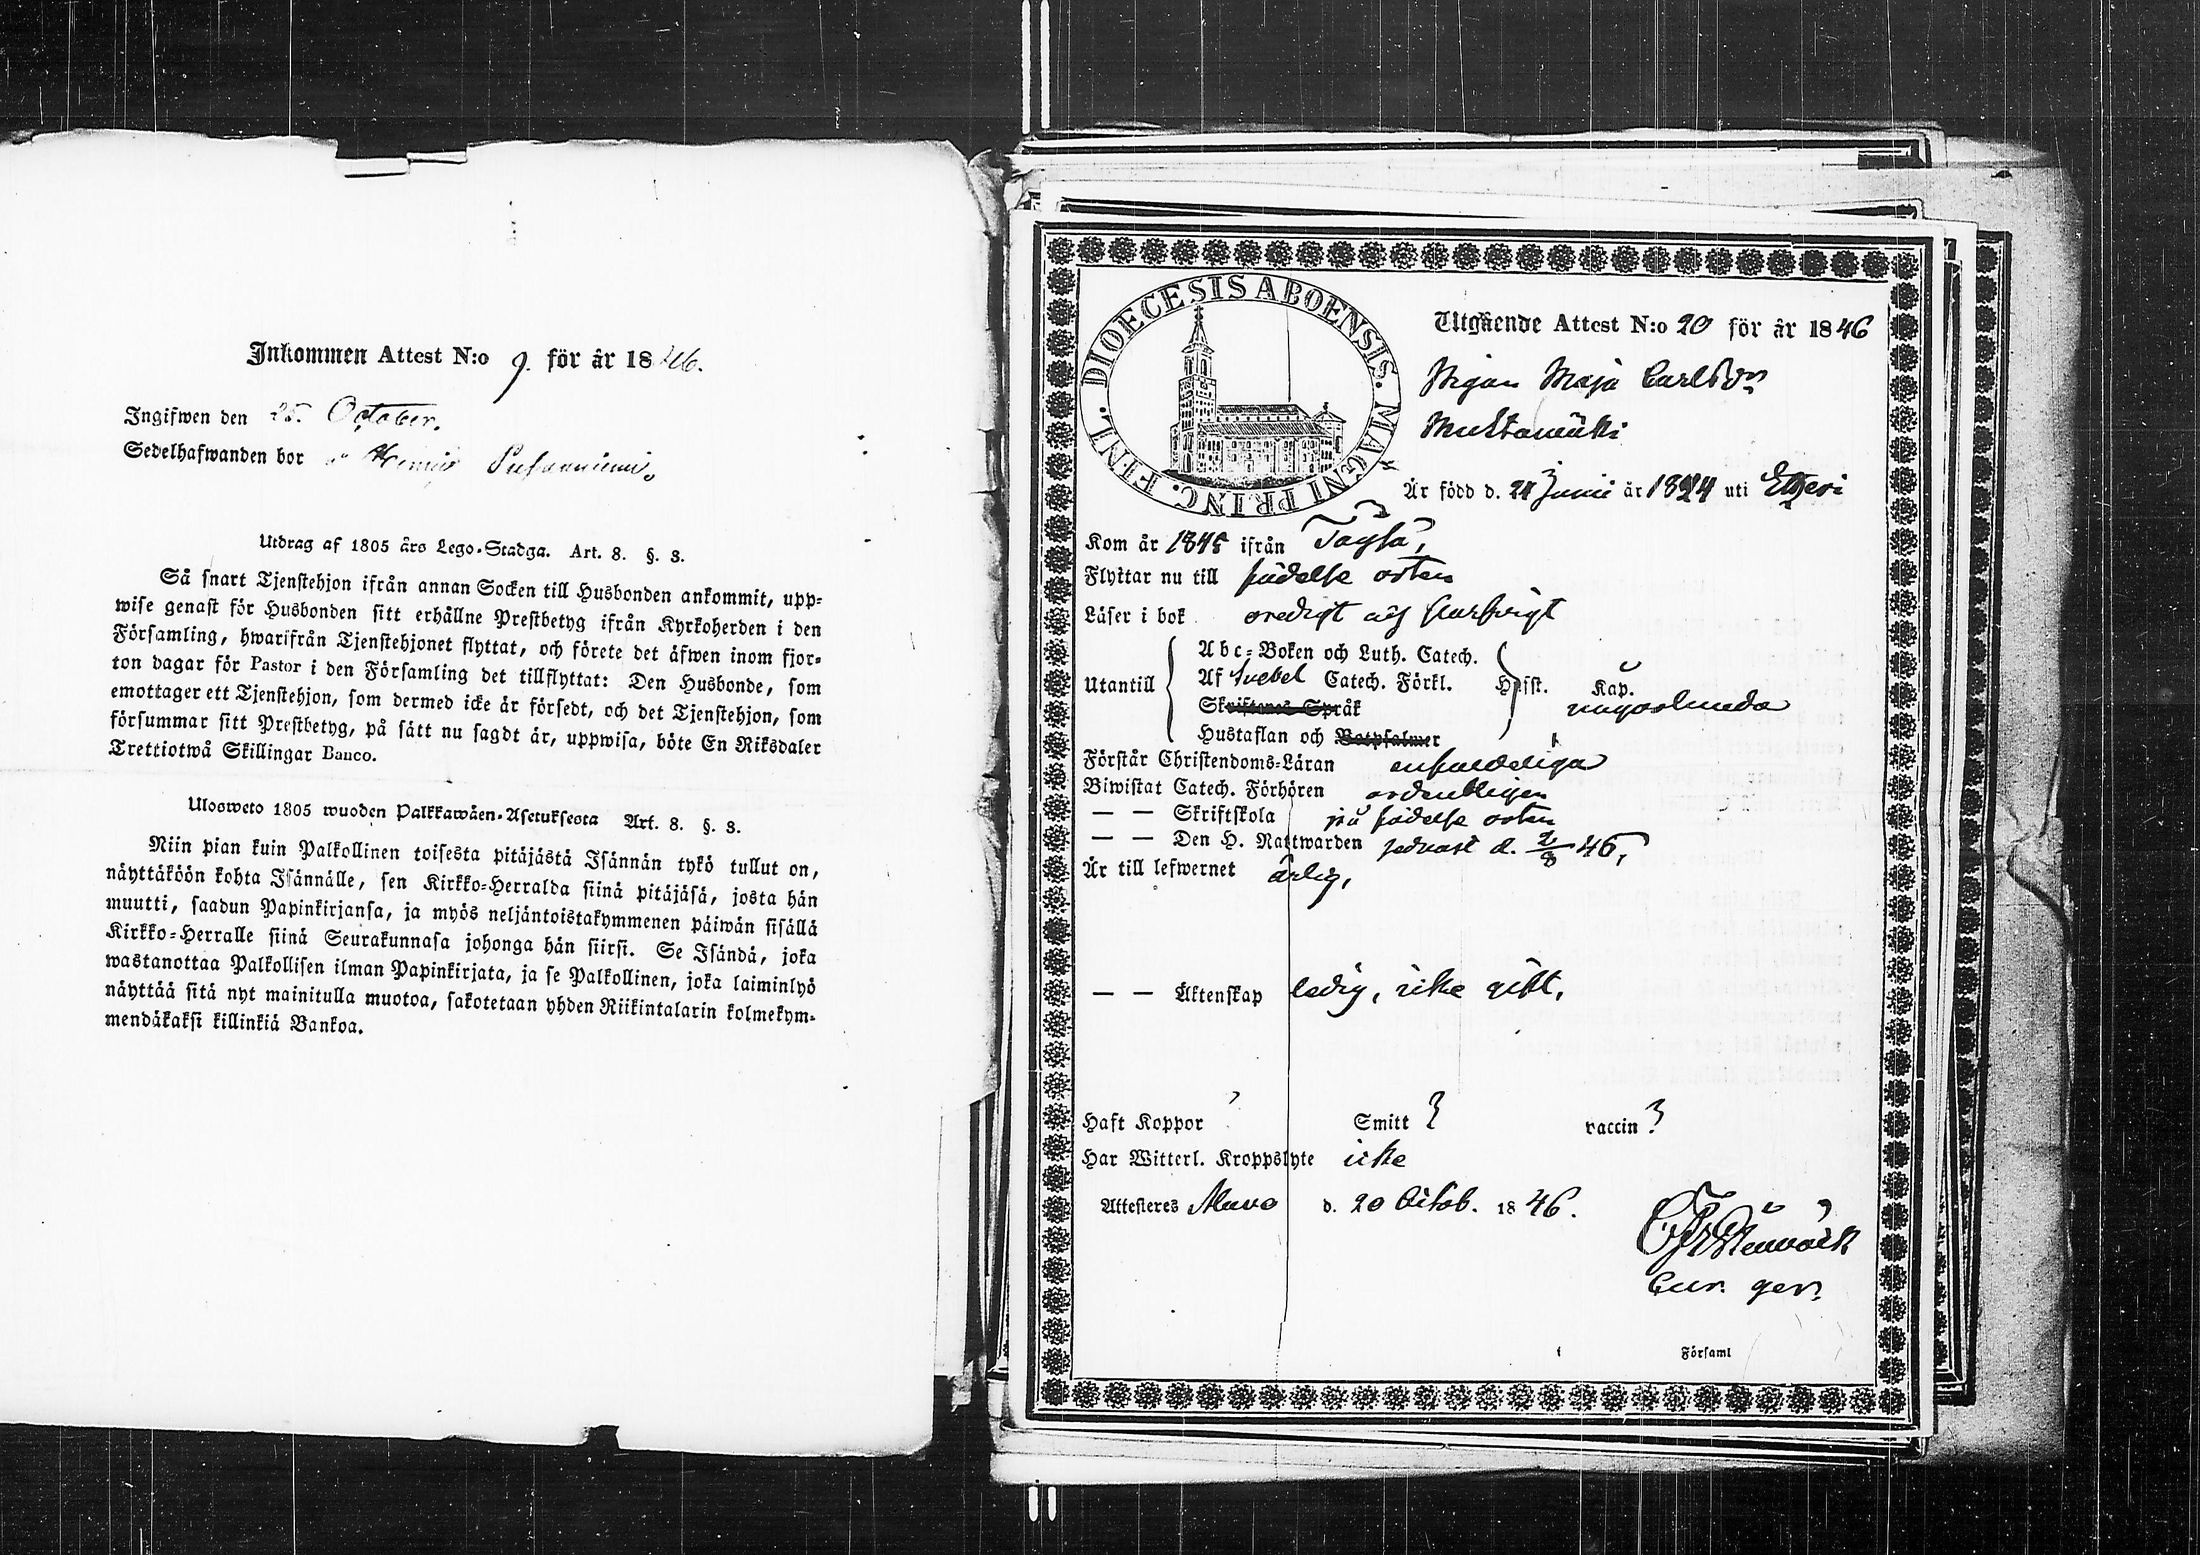 Inkommen Attest N:o 9. för år 1846.
Ingifwen den 25. October.
Sedelhafwanden bor
Utdrag af 1805 års Lego-Stadga. Art. 8. §. 3.
Så snart Tjenstehjon ifrån annan Socken till Husbonden ankommit, upp-
wise genast för Husbonden sitt erhållne Prestbetyg ifrån Kyrkoherden i den
Församling, hwarifrån Tjenstehjonet flyttat, och förete det äfwen inom fjor-
ton dagar för Pastor i den Församling det tillflyttat: Den Husbonde, som
emottager ett Tjenstehjon, som dermed icke är försedt, och det Tjenstehjon, som
försummar sitt Prestbetyg, på sätt nu sagdt är, uppwisa, böte En Riksdaler
Trettiotwå Skillingar Banco.
Ulosweto 1805 wuoden Palkkawäen-Asetuksesta Art. 8. §. 3.
Niin pian kuin Palkollinen toisesta pitäjästä Isännän tykö tullut on,
näyttäköön kohta Isännälle, sen Kirkko-Herralda siinä pitäjäsä, josta hän
muutti, saadun Papinkirjansa, ja myös neljäntoistakymmenen päiwän sisällä
Kirkko-Herralle siinä Seurakunnasa johonga hän siirsi. Se Isändä, joka
wastanottaa Palkollisen ilman Papinkirjata, ja se Palkollinen, joka laiminlyö
näyttää sitä nyt mainitulla muotoa, sakotetaan yhden Riikintalarin kolmekym-
mendäkaksi killinkiä Bankoa.
DIOECESIS ABOENSIS. MAGNI PRINC. FINL.
Utgående Attest N:o 20 för år 1846
Pigan Maja Carlsdr
Mustamäki
Är född d. 24 Junii år 1824 uti Etseri
Kom år 1845 ifrån Töysä,
Flyttar nu till födelse orten
Läser i bok oredigt och
Utantill
Abc-Boken och Luth. Catech.
Af Svebel Catech. Förkl. Hufst. Kap.
Skriftenes Språk
Hustaflan och Botpsalmer
Förstår Christendoms-Läran enfaldeliga
Biwistat Catech. Förhören ordentligen
— — Skriftskola på födelse orten
— — Den H. Nattwarden sednast d. 2/8 46,
Är till lefwernet ärlig,
— — Äktenskap ledig, icke gift,
Haft Koppor ? Smitt ? vaccin ?
Har Witterl. Kroppslyte icke
Attesteres Alavo d. 20 Octob. 1846.
Cur. ger.
Församl